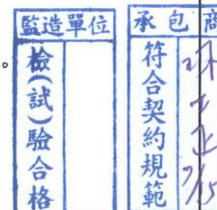 監造單位
檢(試)驗合格
承包商
符合契約規範